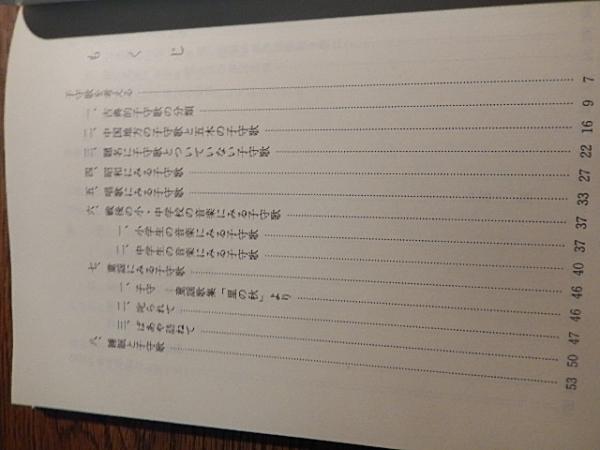 もくじ
子守歌を考える 7
一、古典的子守歌の分類 9
二、中国地方の子守歌と五木の子守歌 16
三、題名に子守歌とついていない子守歌 22
四、昭和にみる子守歌 27
五、唱歌にみる子守歌 33
六、戦後の小・中学校の音楽にみる子守歌 37
一、小学生の音楽にみる子守歌 37
二、中学生の音楽にみる子守歌 40
七、童謡にみる子守歌 46
一、子守 童謡歌集「里の秋」より 46
二、叱られて 47
三、ばあや訪ねて 50
八、睡眠と子守歌 53